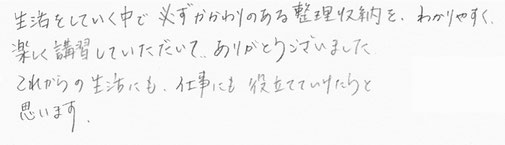 生活をしていく中で 必ずかかわりのある整理収納を、わかりやすく、
楽しく講習していただいて、ありがとうございました
これからの生活にも、仕事にも役立てていけたらと
思います、